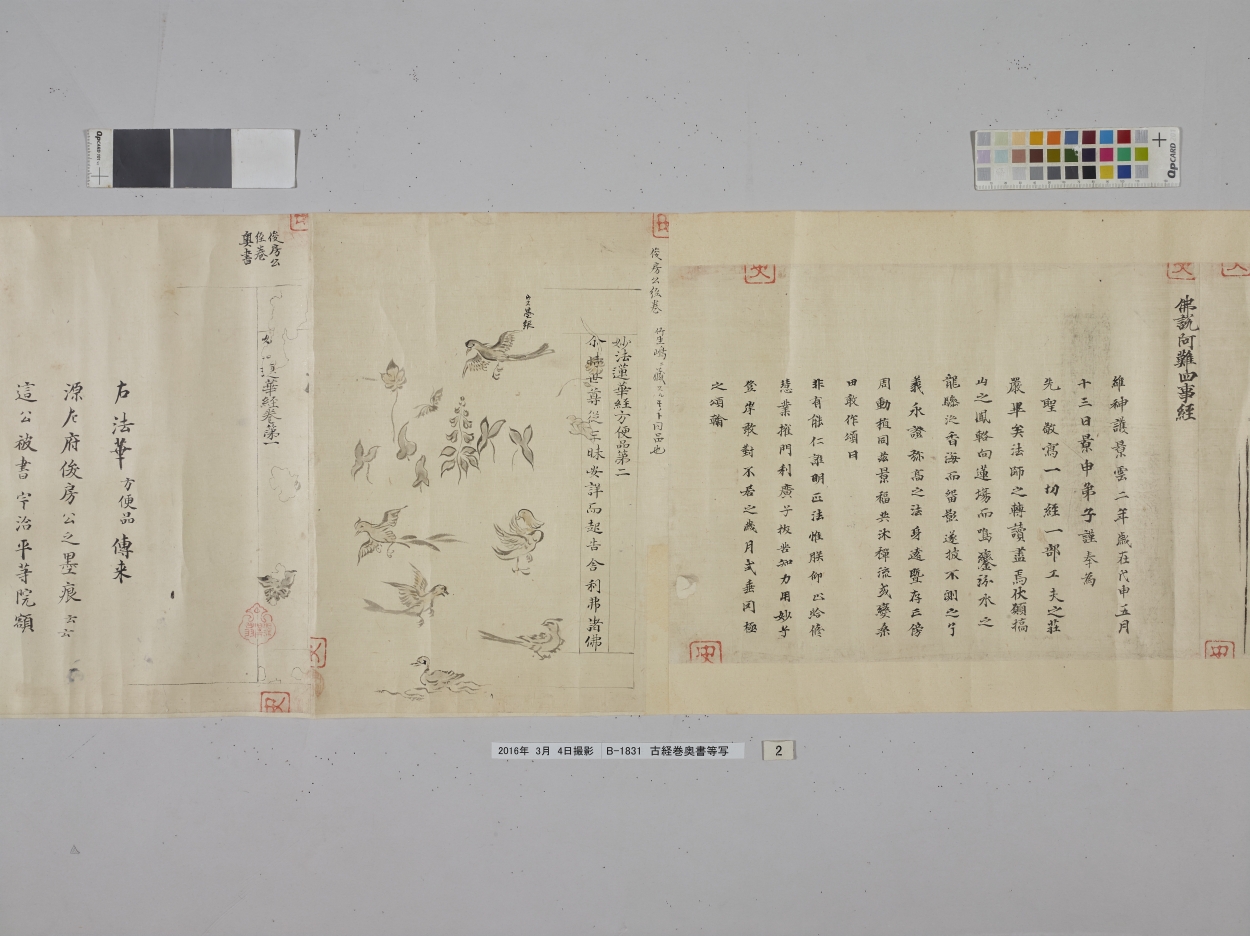 佛説阿難四事経
維神護景雲二年歳在戊申五月
十三日景申弟子謹奉為
先聖敬寫一切経一部工夫之荘
嚴畢矣法師之轉讀盡焉伏願橋
山之鳳輅向蓮場而鳴鑾汾水之
龍驂泛香海而留影遂披不測之了
義永證弥高之法身遠曁存亡傍
周動植同茲景福共沐禅流或變桑
田敢作頌曰
非有能仁誰明正法惟朕仰止給修
慧業權門利廣兮拔苦知力用妙兮
登岸敢對不若之歳月式垂罔極
之頌翰
俊房公経巻
同品也
妙法蓮華経方便品第二
尒時世尊従三昧安詳而起告舎利弗諸佛
俊房公
経巻
奥書
華経巻第一
右法華方便品傳来
源左府俊房公之墨痕云云
這公被書宇治平等院額
2016年 3月 4日撮影 B-1831 古経巻奥書等写
2
QPCARD
QPCARD